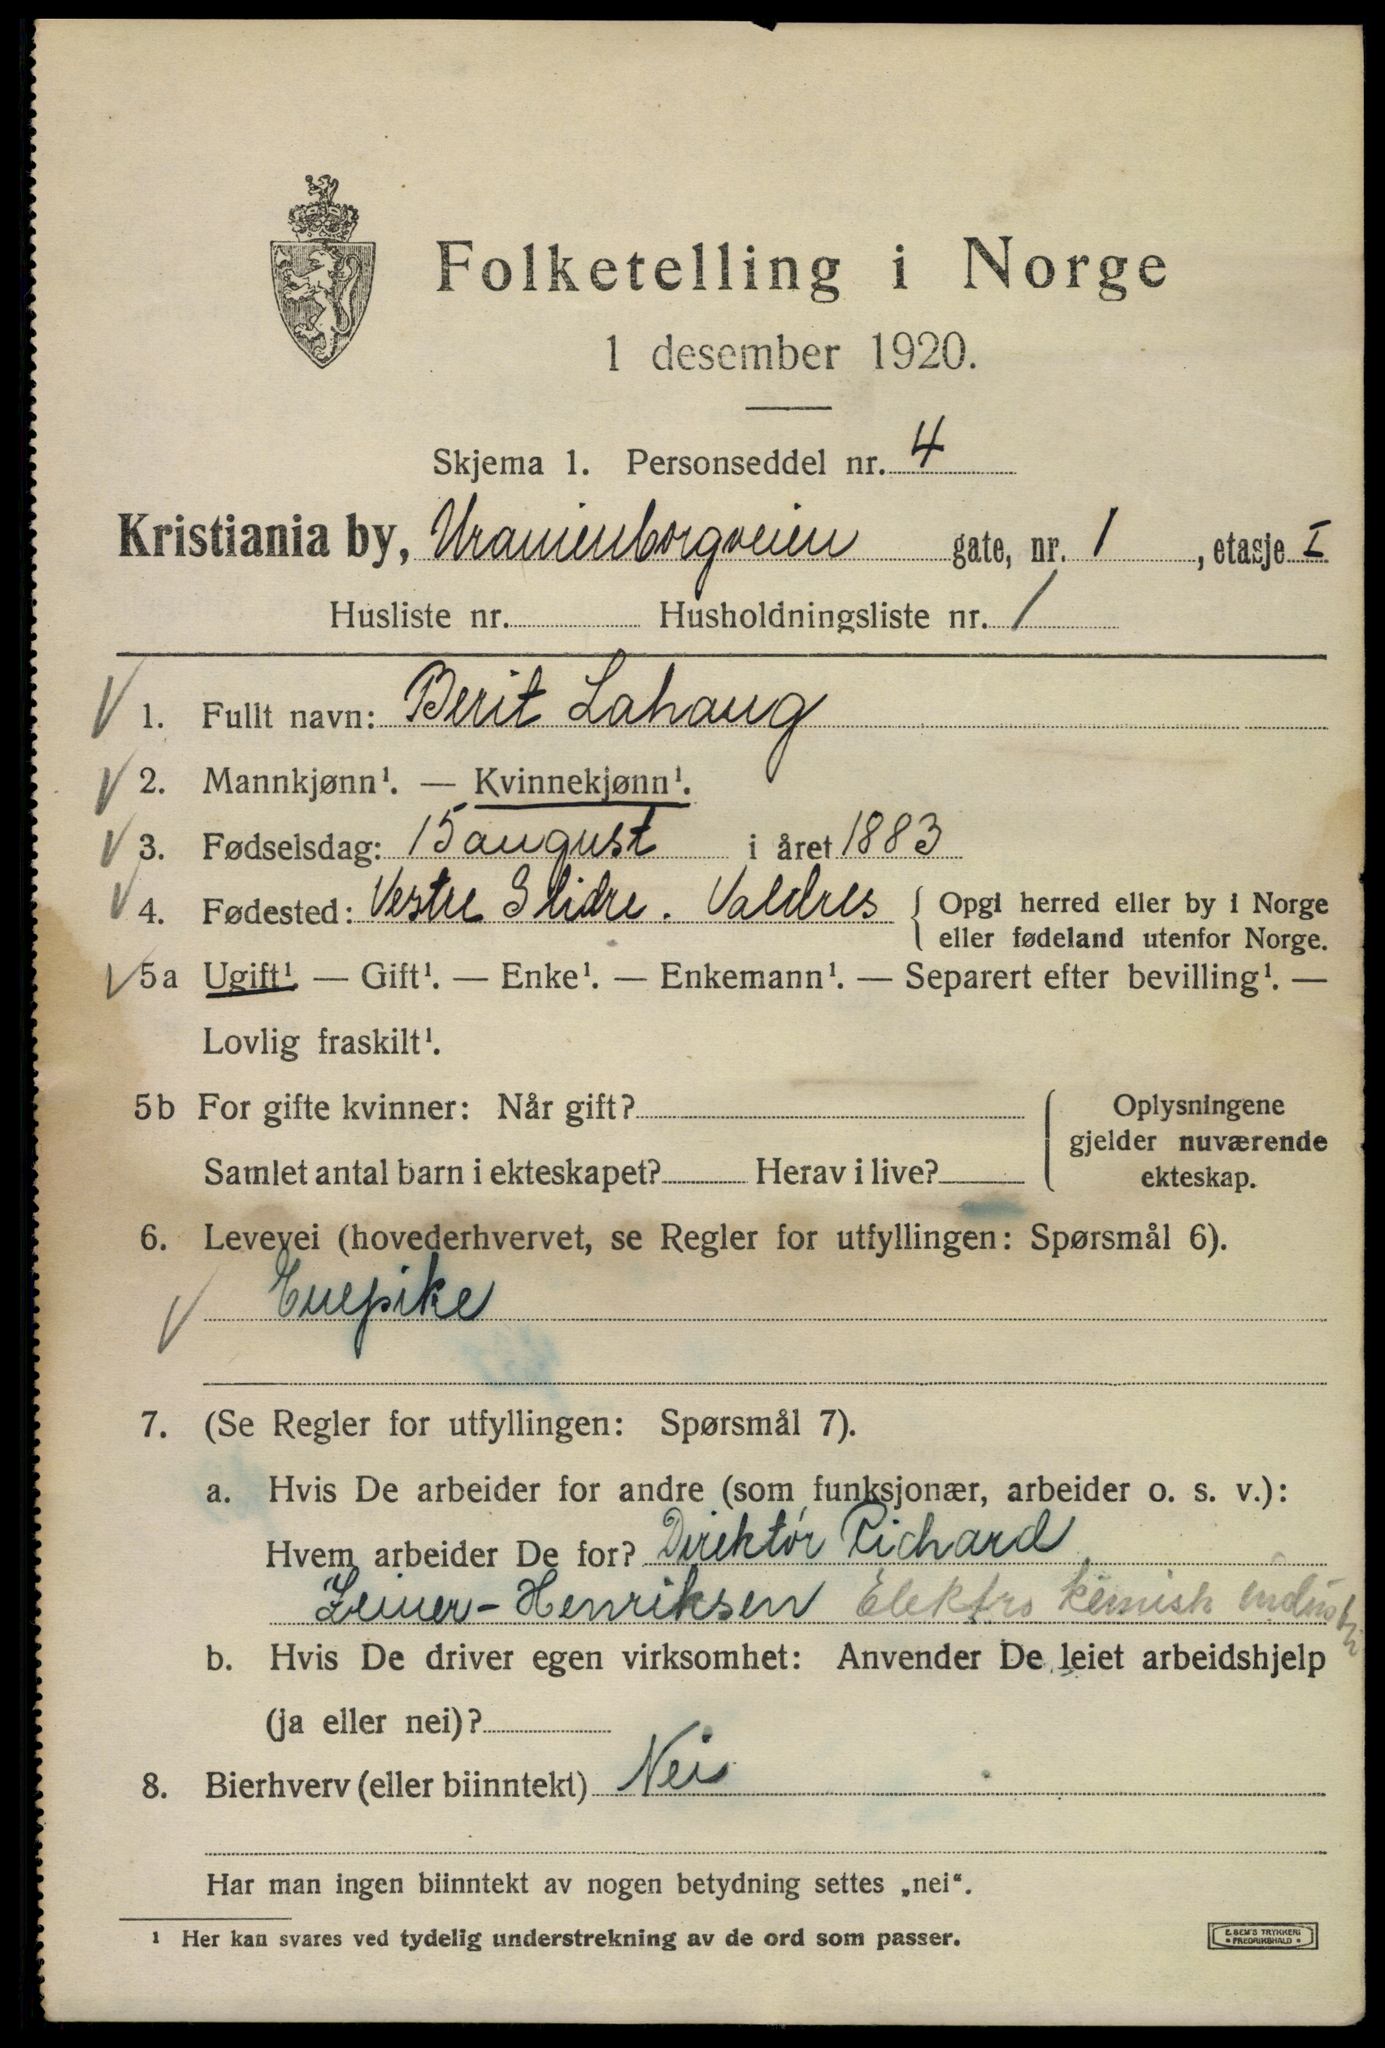 Folketelling i Norge
1 desember 1920.
Skjema 1. Personseddel nr. 4
Kristiania by, Uranienborgveien gate, nr. 1, etasje I
Husliste nr. Husholdningsliste nr. 1
1. Fullt navn: Berit Lahaug
2. Mannkjønn¹. — Kvinnekjønn¹.
3. Fødselsdag: 15 august i året 1883
4. Fødested: Vestre Slidre. Valdres { Opgi herred eller by i Norge
eller fødeland utenfor Norge.
5a Ugift¹. — Gift¹. — Enke¹. — Enkemann¹. — Separert efter bevilling¹. —
Lovlig fraskilt¹.
5b For gifte kvinner: Når gift?
Samlet antal barn i ekteskapet? Herav i live?
{ Oplysningene
gjelder nuværende
ekteskap.
6. Levevei (hovederhvervet, se Regler for utfyllingen: Spørsmål 6).
Enepike
7. (Se Regler for utfyllingen: Spørsmål 7).
a. Hvis De arbeider for andre (som funksjonær, arbeider o. s. v.):
Hvem arbeider De for? Direktør Richard
Zeiner-Henriksen Elektro kemisk industri
b. Hvis De driver egen virksomhet: Anvender De leiet arbeidshjelp
(ja eller nei)?
8. Bierhverv (eller biinntekt) Nei
Har man ingen biinntekt av nogen betydning settes „nei“.
¹ Her kan svares ved tydelig understrekning av de ord som passer.
E. SEM'S TRYKKERI
* FREDRIKSHALD *